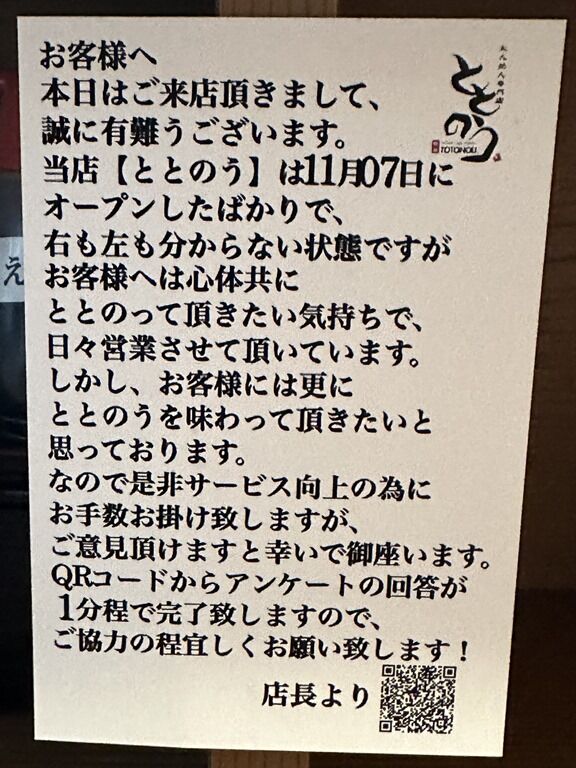 お客様へ
本日はご来店頂きまして、
誠に有難うございます。
当店【ととのう】は11月07日に
オープンしたばかりで、
右も左も分からない状態ですが
お客様へは心体共に
ととのって頂きたい気持ちで、
日々営業させて頂いています。
しかし、お客様には更に
ととのうを味わって頂きたいと
思っております。
なので是非サービス向上の為に
お手数お掛け致しますが、
ご意見頂けますと幸いで御座います。
QRコードからアンケートの回答が
1分程で完了致しますので、
ご協力の程宜しくお願い致します！
店長より
ととのう
TOTONOU
え